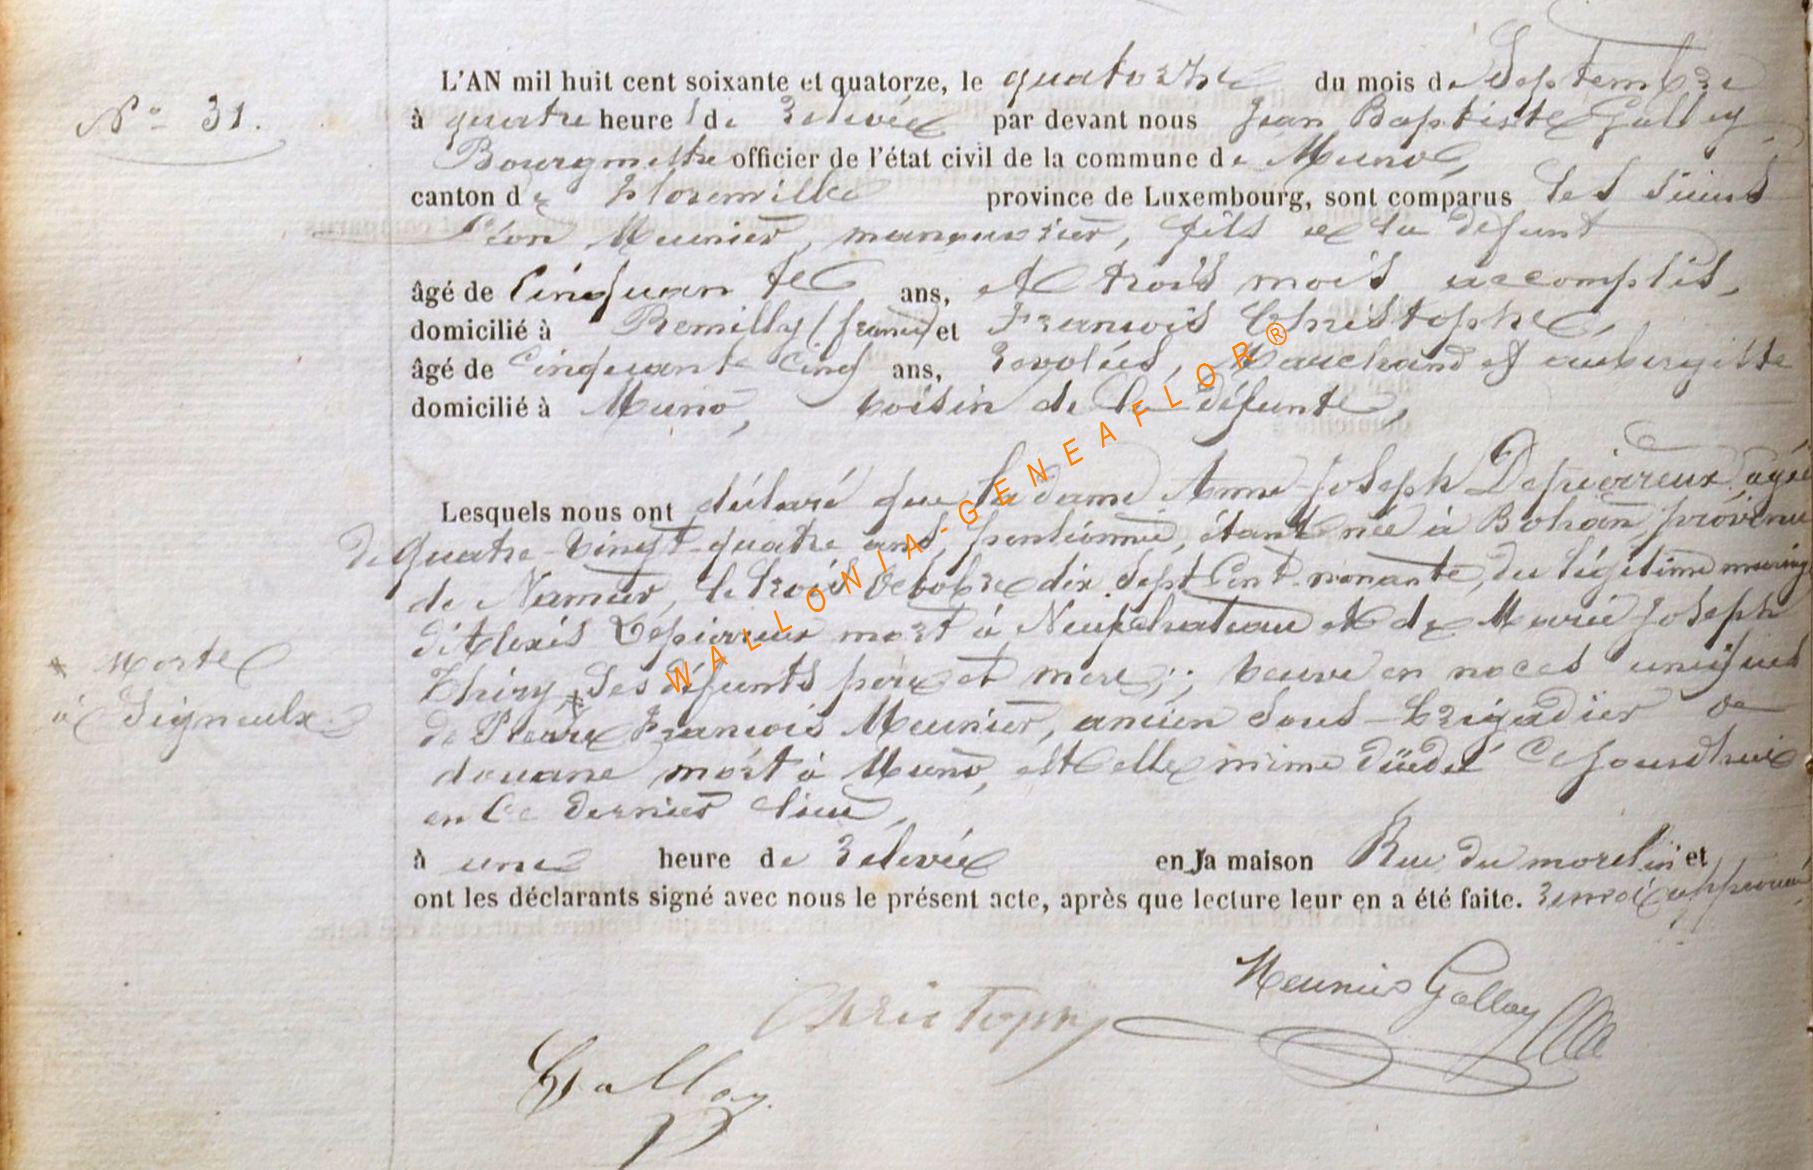 L'AN mil huit cent soixante et quatorze, le quatorze du mois de Septembre
N° 31.
à quatre heures de relevée par devant nous Jean Baptiste Galley
Bourgmestre officier de l'état civil de la commune de Muno,
canton de Florenville province de Luxembourg, sont comparus les Sieurs
Léon Meunier, manouvrier, fils de la défunt
âgé de Cinquante ans, et trois mois accomplis,
domicilié à Remilly (france) et François Christophe,
âgé de Cinquante Cinq ans, révolus, Marchand et aubergiste
domicilié à Muno, voisin de la défunte,
Lesquels nous ont déclaré que la dame Anne Joseph Depierreux, agée
de quatre-vingt-quatre ans, pensionnée, étant née à Bohan, province
de Namur, le trois Octobre dix Sept Cent nonante, du légitime mariage
d'Alexis Depierreux mort à Neufchateau et de Marie Joseph
Thiry, * Ses défunts père et mere; veuve en noces uniques
* Morte
à Signeulx
de Pierre François Meunier, ancien Sous-brigadier de
douane mort à Muno, est elle même décédé Cejourdhui
en Ce dernier lieu,
à une heure de relevée en la maison Rue du et
ont les déclarants signé avec nous le présent acte, après que lecture leur en a été faite. renvoi approuvé
Meunier Galloy
Christophe
Galloy
WALLONIA-GENEAFLOR®